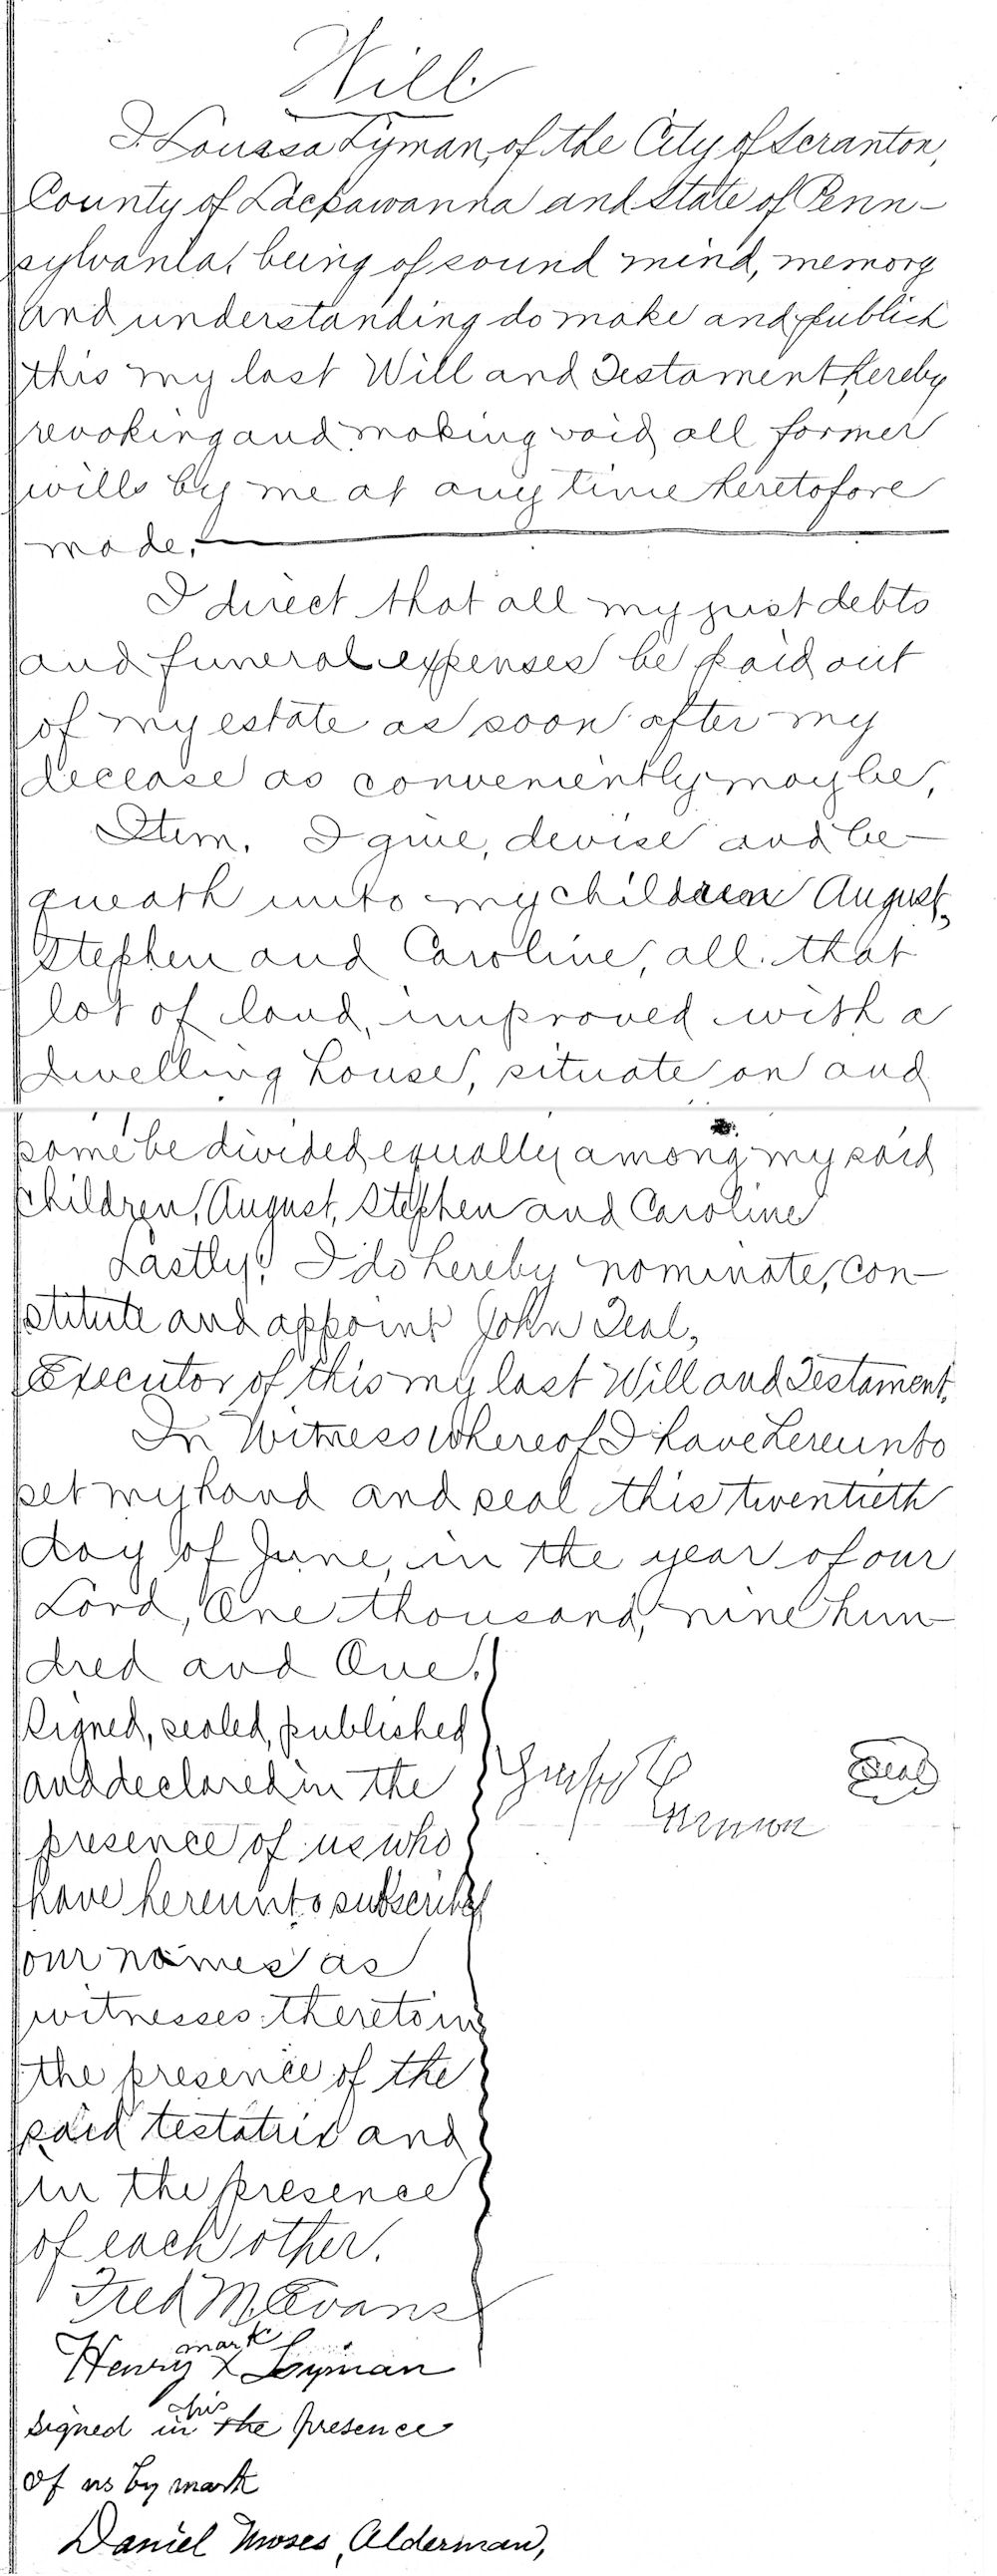 Will
I Louisa Lyman, of the City of Scranton,
County of Lackawanna and State of Penn-
sylvania, being of sound mind, memory
and understanding do make and publish
this my last Will and Testament hereby
revoking and making void all former
wills by me at any time heretofore
made.
I direct that all my just debts
and funeral expenses be paid out
of my estate as soon after my
decease as conveniently may be,
Item. I give, devise and be-
queath unto my children August,
Stephen and Caroline, all that
lot of land, improved with a
dwelling house, situate on and
same be divided equally among my said
children, August, Stephen and Caroline
Lastly, I do hereby nominate, con-
stitute and appoint John Teal,
Executor of this my last Will and Testament.
In Witness whereof I have hereunto
set my hand and seal this twentieth
day of June, in the year of our
Lord, One thousand, nine hun-
dred and One.
Signed, sealed, published
and declared in the
presence of us who
have hereunto subscribed
our names as
witnesses thereto in
the presence of the
said testatrix and
in the presence
of each other.
Seal
Fred M. Evans
mark
Henry X Lyman
his
Signed in the presence
of us by mark
Daniel Moses, Alderman,